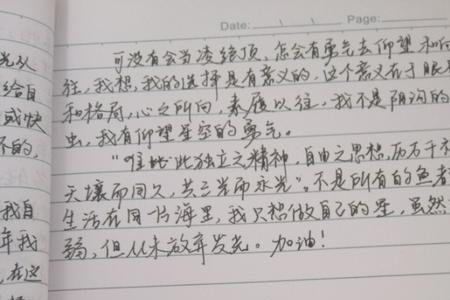 Date: Page:
可没有会当凌绝顶,怎会有勇气去仰望和向
往,我想,我的选择是有意义的,这个意义在于眼
和格局,心之所向,素履以往,我不是阴沟的
虫,我有仰望星空的勇气。
"惟此独立之精神,自由之思想,历万千
天壤而同久,共三光而永光"。不是所有的鱼都
生活在同一片海里,我只想做自己的星,虽然
弱,但从未放弃发光。加油!
光从
给自
或快
不的,
我自
年我
在这